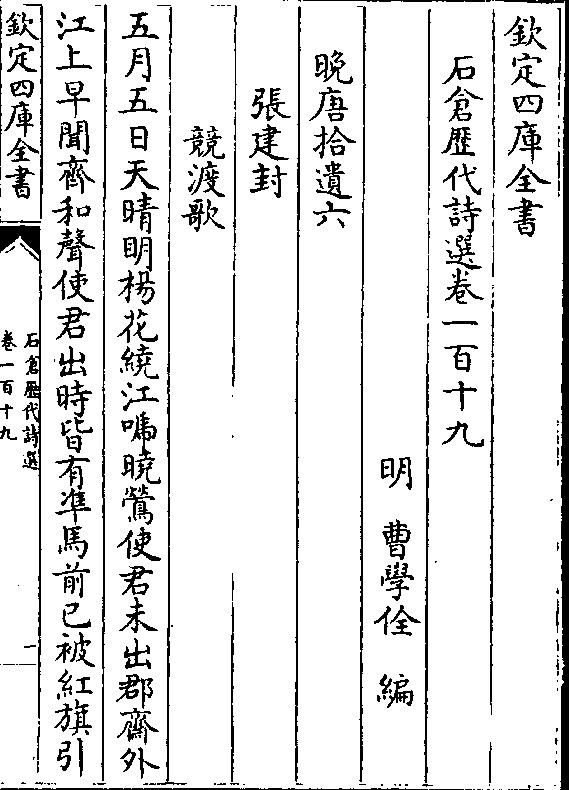 欽定四庫全書
石倉歷代詩選卷一百十九
明 曹學佺 編
晚唐拾遺六
張建封
競渡歌
五月五日天晴明楊花繞江嗁曉鶯使君未出郡齋外
江上早聞齊和聲使君出時皆有凖馬前已被紅旗引
欽定四庫全書
石倉歷代詩選
卷一百十九
一